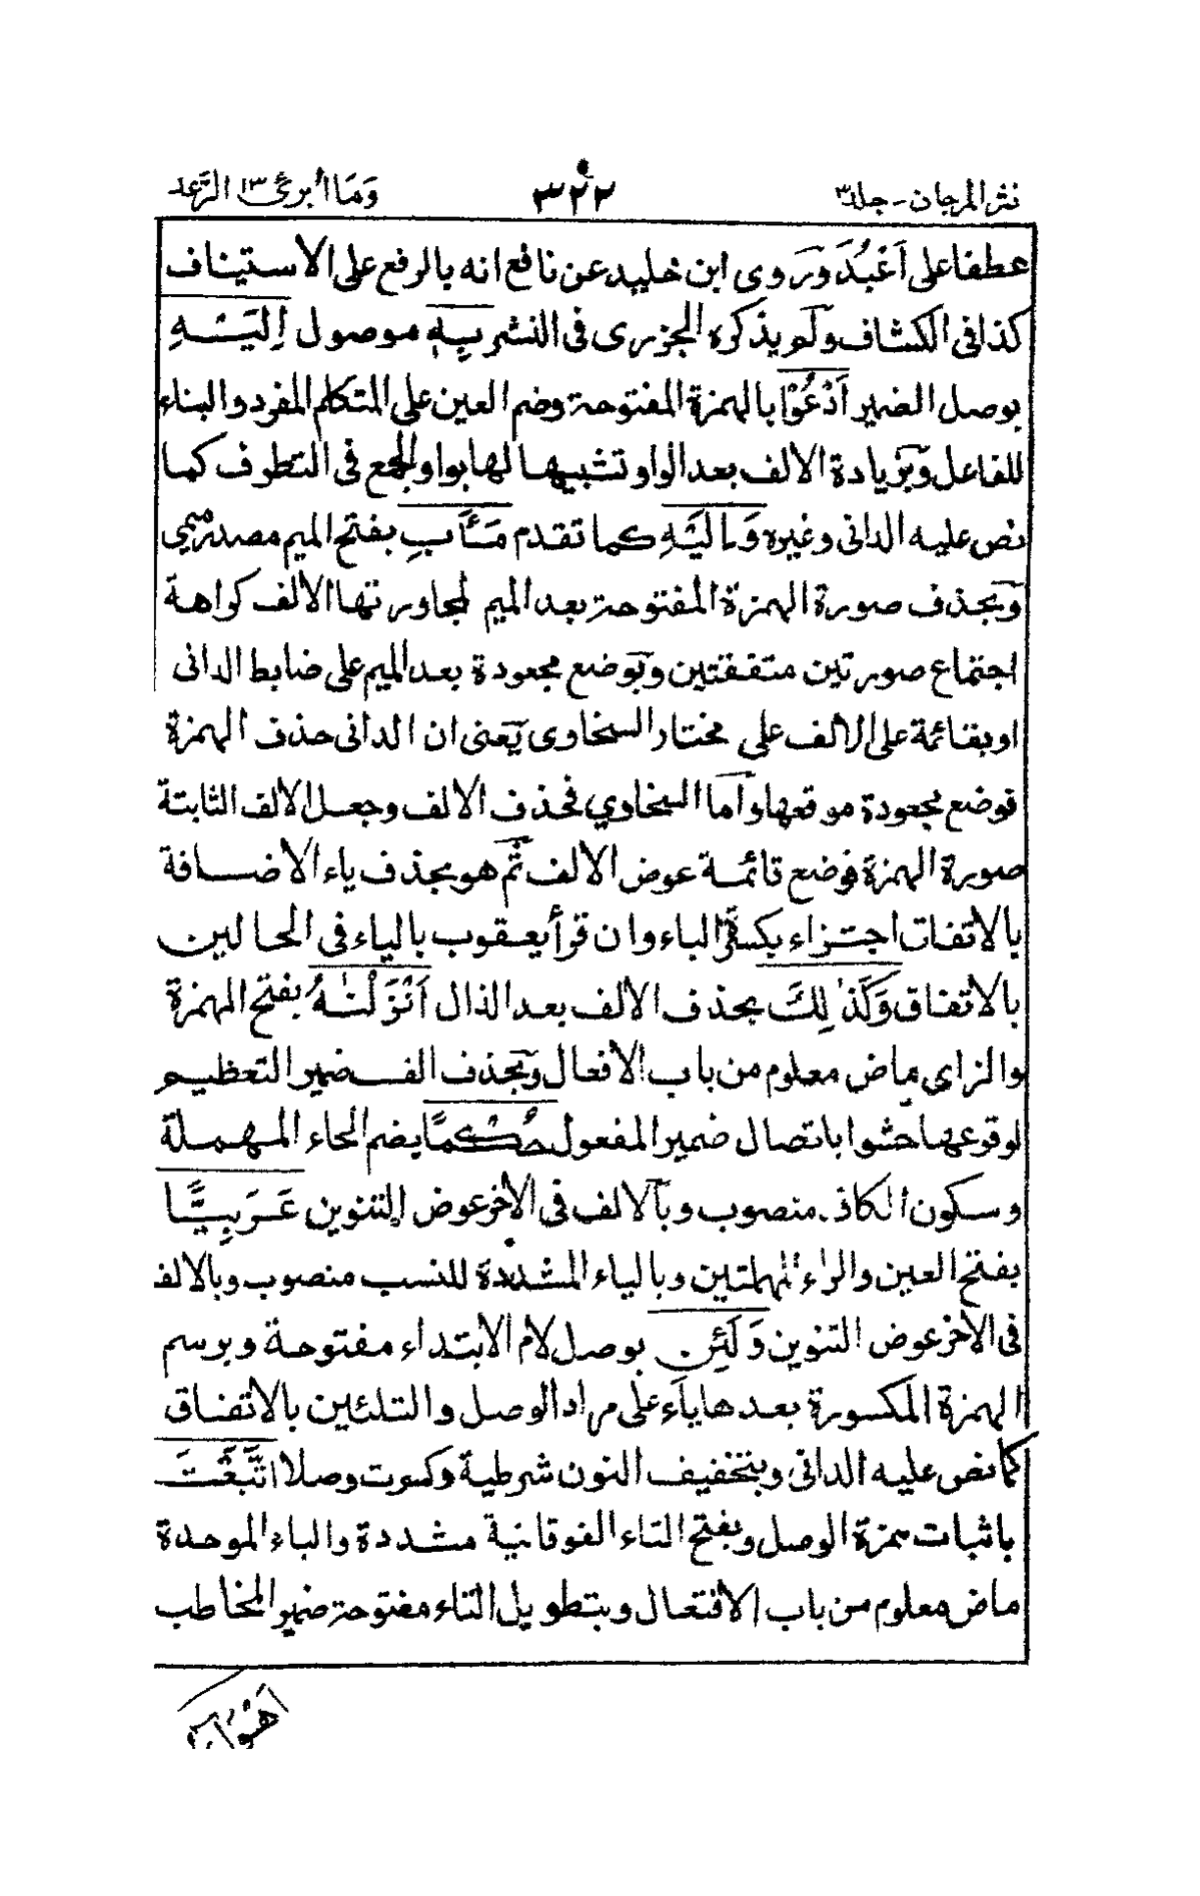 نثر المرجان - جلد ٣
٣٢٢
وَمَا أُبرئ ١٣ الرَّعد
عطفا على اَعْبُدَ وروى ابن خليد عن نافع انه بالرفع على الاستيناف
كذا فى الكشاف ولم يذكره الجزرى فى النشر بِهٖ موصول اِلَيْهِ
بوصل الضمير اَدْعُوْا بالهمزة المفتوحة وضم العين على المتكلم المفرد والبناء
للفاعل وبزيادة الالف بعد الواو تشبيها لها بواو الجمع فى التطرف كما
نص عليه الدانى وغيره وَاِلَيْهِ كما تقدم مَـَٔابِ بفتح الميم مصدر ميمى
وبحذف صورة الهمزة المفتوحة بعد الميم لمجاورتها الالف كراهة
اجتماع صورتين متفقتين وبوضع مجعودة بعد الميم على ضابط الدانى
او بقائمة على الالف على مختار السخاوى يعنى ان الدانى حذف الهمزة
فوضع مجعودة موقعها واما السخاوي فحذف الالف وجعل الالف الثابتة
صورة الهمزة فوضع قائمة عوض الالف ثم هو بحذف ياء الاضافة
بالاتفاق اجتزاء بكسرة الباء وان قرأ يعقوب بالياء فى الحالين
بالاتفاق وَكَذٰلِكَ بحذف الالف بعد الذال اَنْزَلْنٰهُ بفتح الهمزة
والزاى ماض معلوم من باب الافعال وبحذف الف ضمير التعظيم
لوقوعها حشوا باتصال ضمير المفعول حُكْمًا بضم الحاء المهملة
وسكون الكاف منصوب وبالالف فى الاخر عوض التنوين عَرَبِيًّا
بفتح العين والراء المهملتين وبالياء المشددة للنسب منصوب وبالالف
فى الاخر عوض التنوين وَلَئِنِ بوصل لام الابتداء مفتوحة وبرسم
الهمزة المكسورة بعدها ياء على مراد الوصل والتلئين بالاتفاق
كما نص عليه الدانى وبتخفيف النون شرطية وكسرت وصلا اتَّبَعْتَ
باثبات همزة الوصل وبفتح التاء الفوقانية مشددة والباء الموحدة
ماض معلوم من باب الافتعال وبتطويل التاء مفتوحة ضمير المخاطب